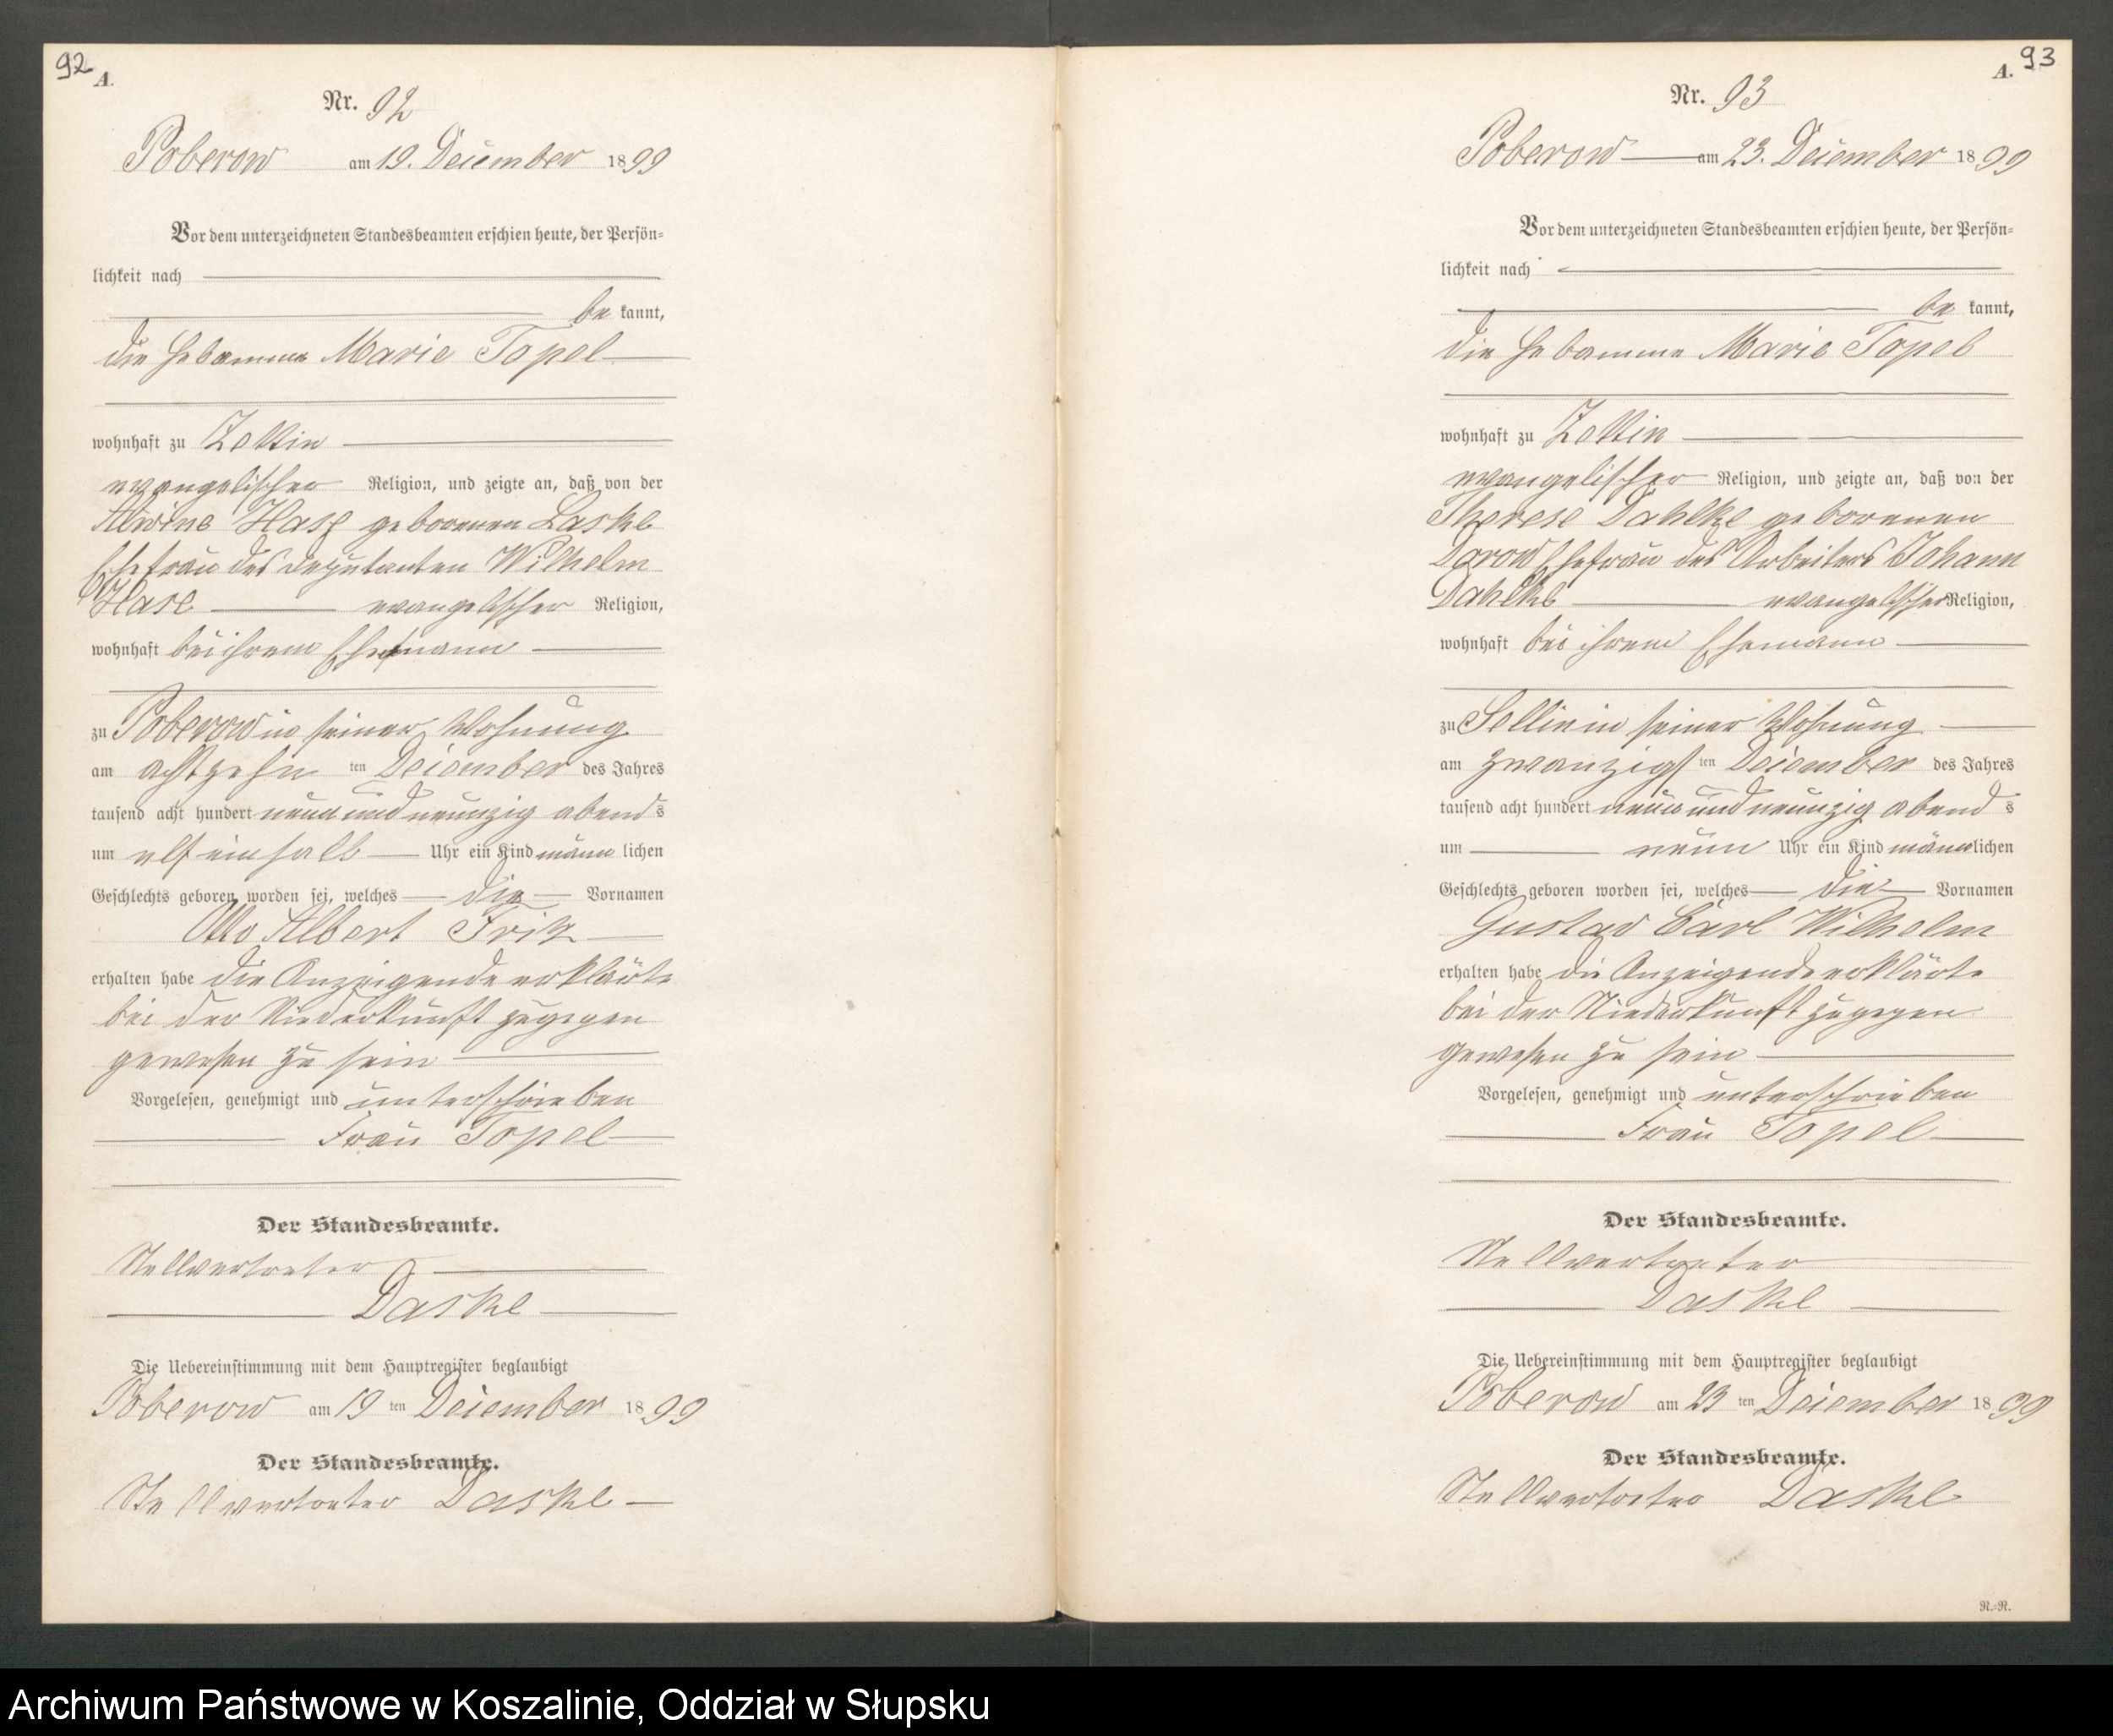 92
A.
Nr. 92
Poberow am 19. Dezember 1899
Vor dem unterzeichneten Standesbeamten erschien heute, der Persön-
lichkeit nach
be kannt,
die Hebamme Marie Topel
wohnhaft zu Zettin
evangelischer Religion, und zeigte an, daß von der
Alwine Hase geborenen Laske
Ehefrau des Deputanten Wilhelm
Hase evangelischer Religion,
wohnhaft bei ihrem Ehemann
zu Poberow in seiner Wohnung
am achtzehn ten Dezember des Jahres
tausend acht hundert neun und neunzig abend s
um elf einhalb Uhr ein Kind männ lichen
Geschlechts geboren worden sei, welches die Vornamen
Otto Albert Fritz
erhalten habe die Anzeigende erklärte
bei der Niederkunft zugegen
gewesen zu sein
Vorgelesen, genehmigt und unterschrieben
Frau Topel
Der Standesbeamte.
Stellvertreter
Daske
Die Uebereinstimmung mit dem Hauptregister beglaubigt
Poberow am 19 ten Dezember 1899
Der Standesbeamte.
Stellvertreter Daske
A. 93
Nr. 93
Poberow am 23. Dezember 1899
Vor dem unterzeichneten Standesbeamten erschien heute, der Persön-
lichkeit nach
be kannt,
die Hebamme Marie Topel
wohnhaft zu Zettin
evangelischer Religion, und zeigte an, daß von der
Therese Dahlke geborenen
Darow Ehefrau des Arbeiters Johann
Dahlke evangelischer Religion,
wohnhaft bei ihrem Ehemann
zu Sellin in seiner Wohnung
am zwanzigs ten Dezember des Jahres
tausend acht hundert neun und neunzig abend s
um neun Uhr ein Kind männlichen
Geschlechts geboren worden sei, welches die Vornamen
Gustav Carl Wilhelm
erhalten habe die Anzeigende erklärte
bei der Niederkunft zugegen
gewesen zu sein
Vorgelesen, genehmigt und unterschrieben
Frau Topel
Der Standesbeamte.
Stellvertreter
Daske
Die Uebereinstimmung mit dem Hauptregister beglaubigt
Poberow am 23 ten Dezember 1899
Der Standesbeamte.
Stellvertreter Daske
R.=R.
Archiwum Państwowe w Koszalinie, Oddział w Słupsku